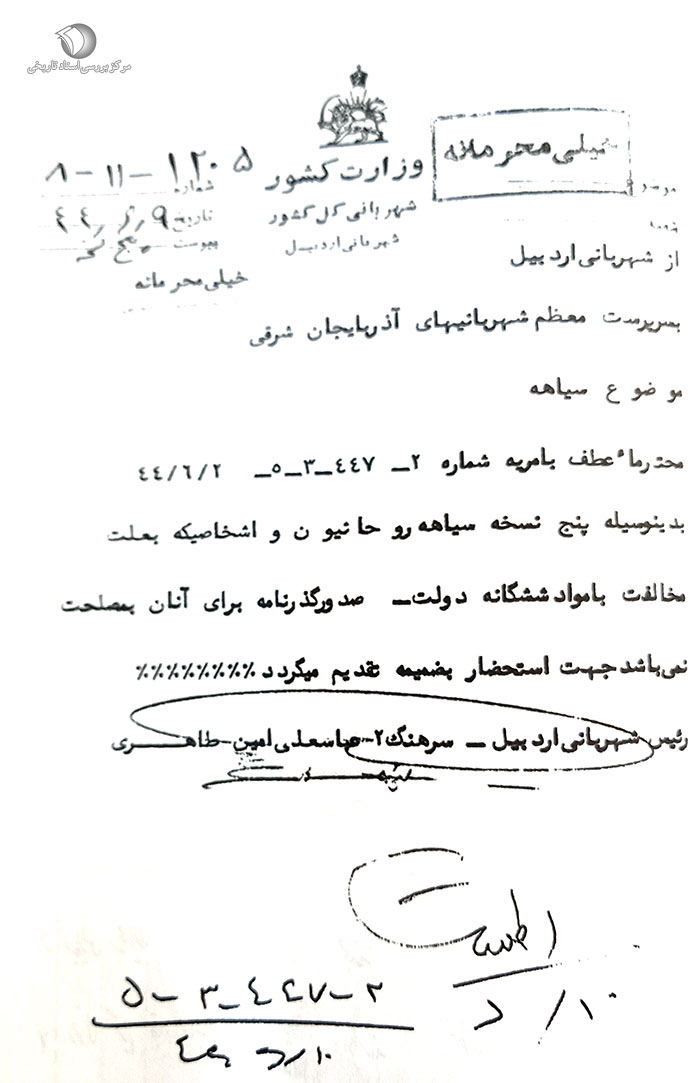 مرکز بررسی اسناد تاریخی
خیلی محرمانه
وزارت کشور
شهربانی کل کشور
شهربانی اردبیل
شماره ۵ ۱۲۰-۱۱-۸
تاریخ ۴۴
پیوست پنج
خیلی محرمانه
موضوع
از شهربانی اردبیل
بسرپرست معظم شهربانیهای آذربایجان شرقی
موضوع سیاهه
محترماً عطف بامریه شماره ۲ــ ۴۴۷ــ۳ــ۵ــ ۴۴/۶/۲
بدینوسیله پنج نسخه سیاهه روحانیون و اشخاصیکه بعلت
مخالفت بامواد ششگانه دولت ــ صدورگذرنامه برای آنان بمصلحت
نمی‌باشد جهت استحضار بضمیمه تقدیم میگردد %%%%%%%%%
رئیس شهربانی اردبیل ــ سرهنگ۲- عباسعلی امین طاهری
۲-۴۴۷-۳-۵